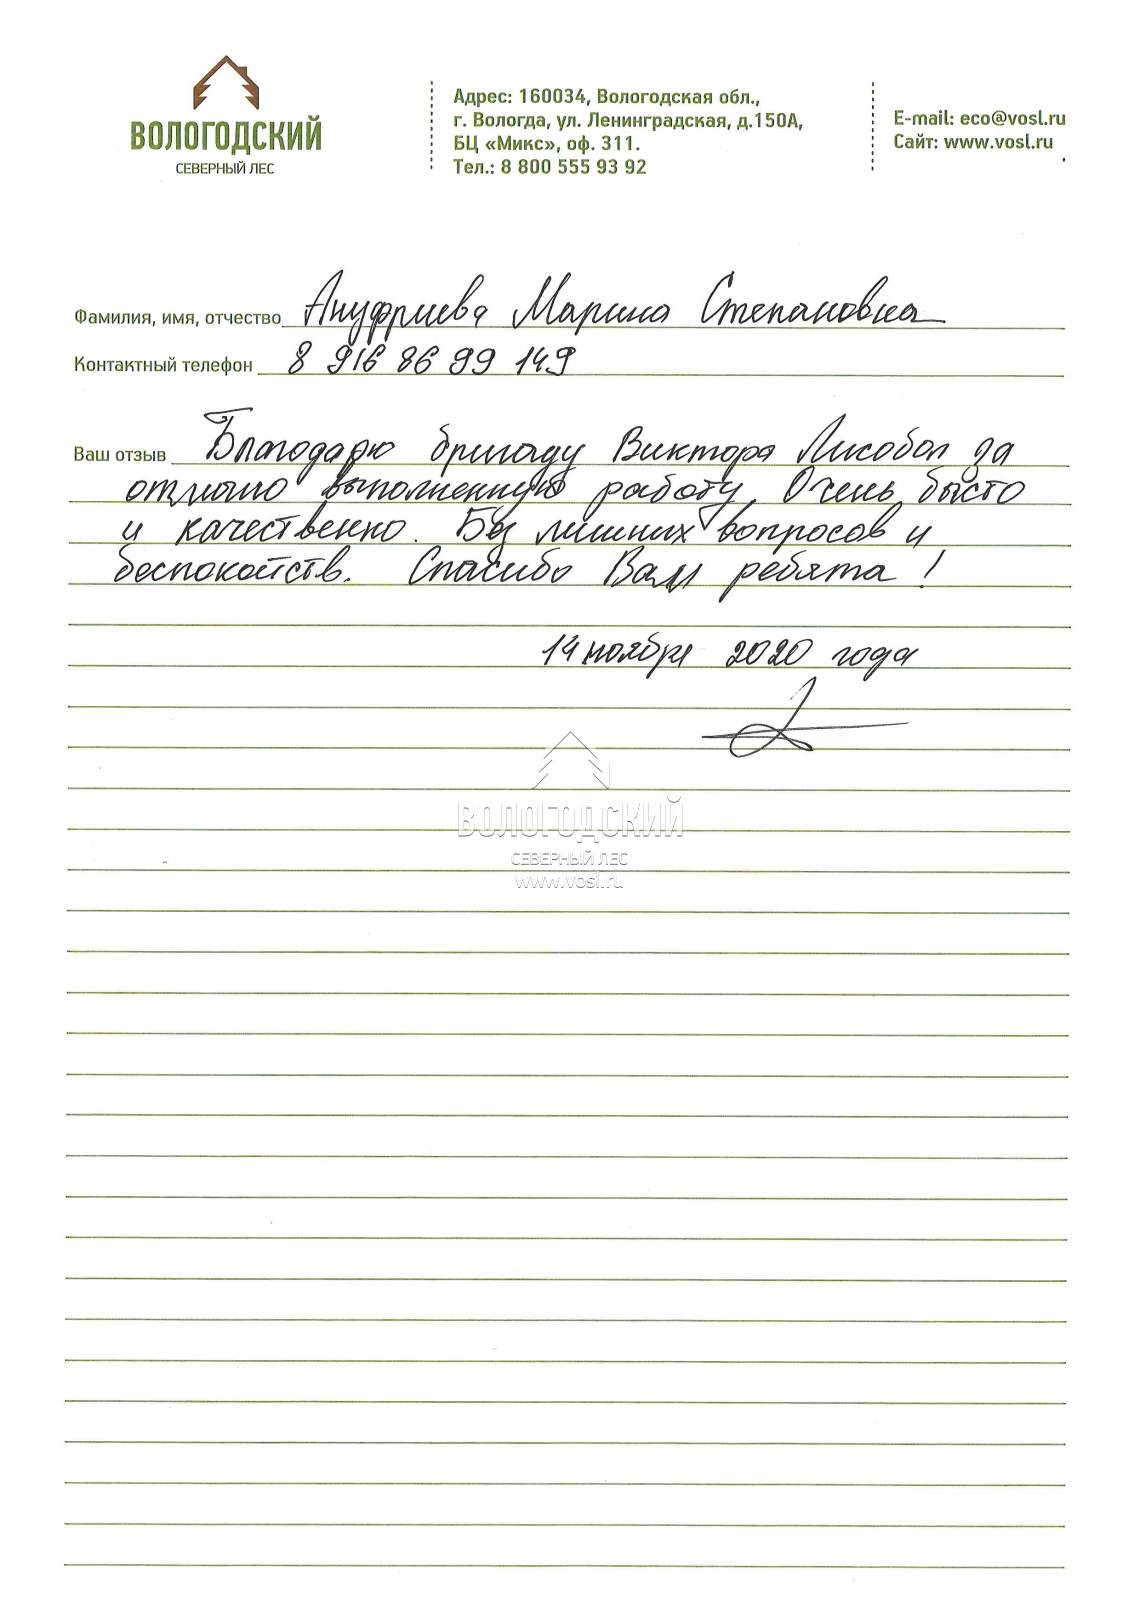 ВОЛОГОДСКИЙ
СЕВЕРНЫЙ ЛЕС
Адрес: 160034, Вологодская обл.,
г. Вологда, ул. Ленинградская, д.150А,
БЦ «Микс», оф. 311.
Тел.: 8 800 555 93 92
E-mail: eco@vosl.ru
Сайт: www.vosl.ru
Фамилия, имя, отчество Ануфриева Марина Степановна
Контактный телефон 8 916 86 99 149
Ваш отзыв Благодарю бригаду Виктора Лисобол за
отлично выполненную работу. Очень бысто
и качественно. Без лишних вопросов и
беспокойств. Спасибо Вам ребята!
14 ноября 2020 года
ВОЛОГОДСКИЙ
СЕВЕРНЫЙ ЛЕС
www.vosl.ru